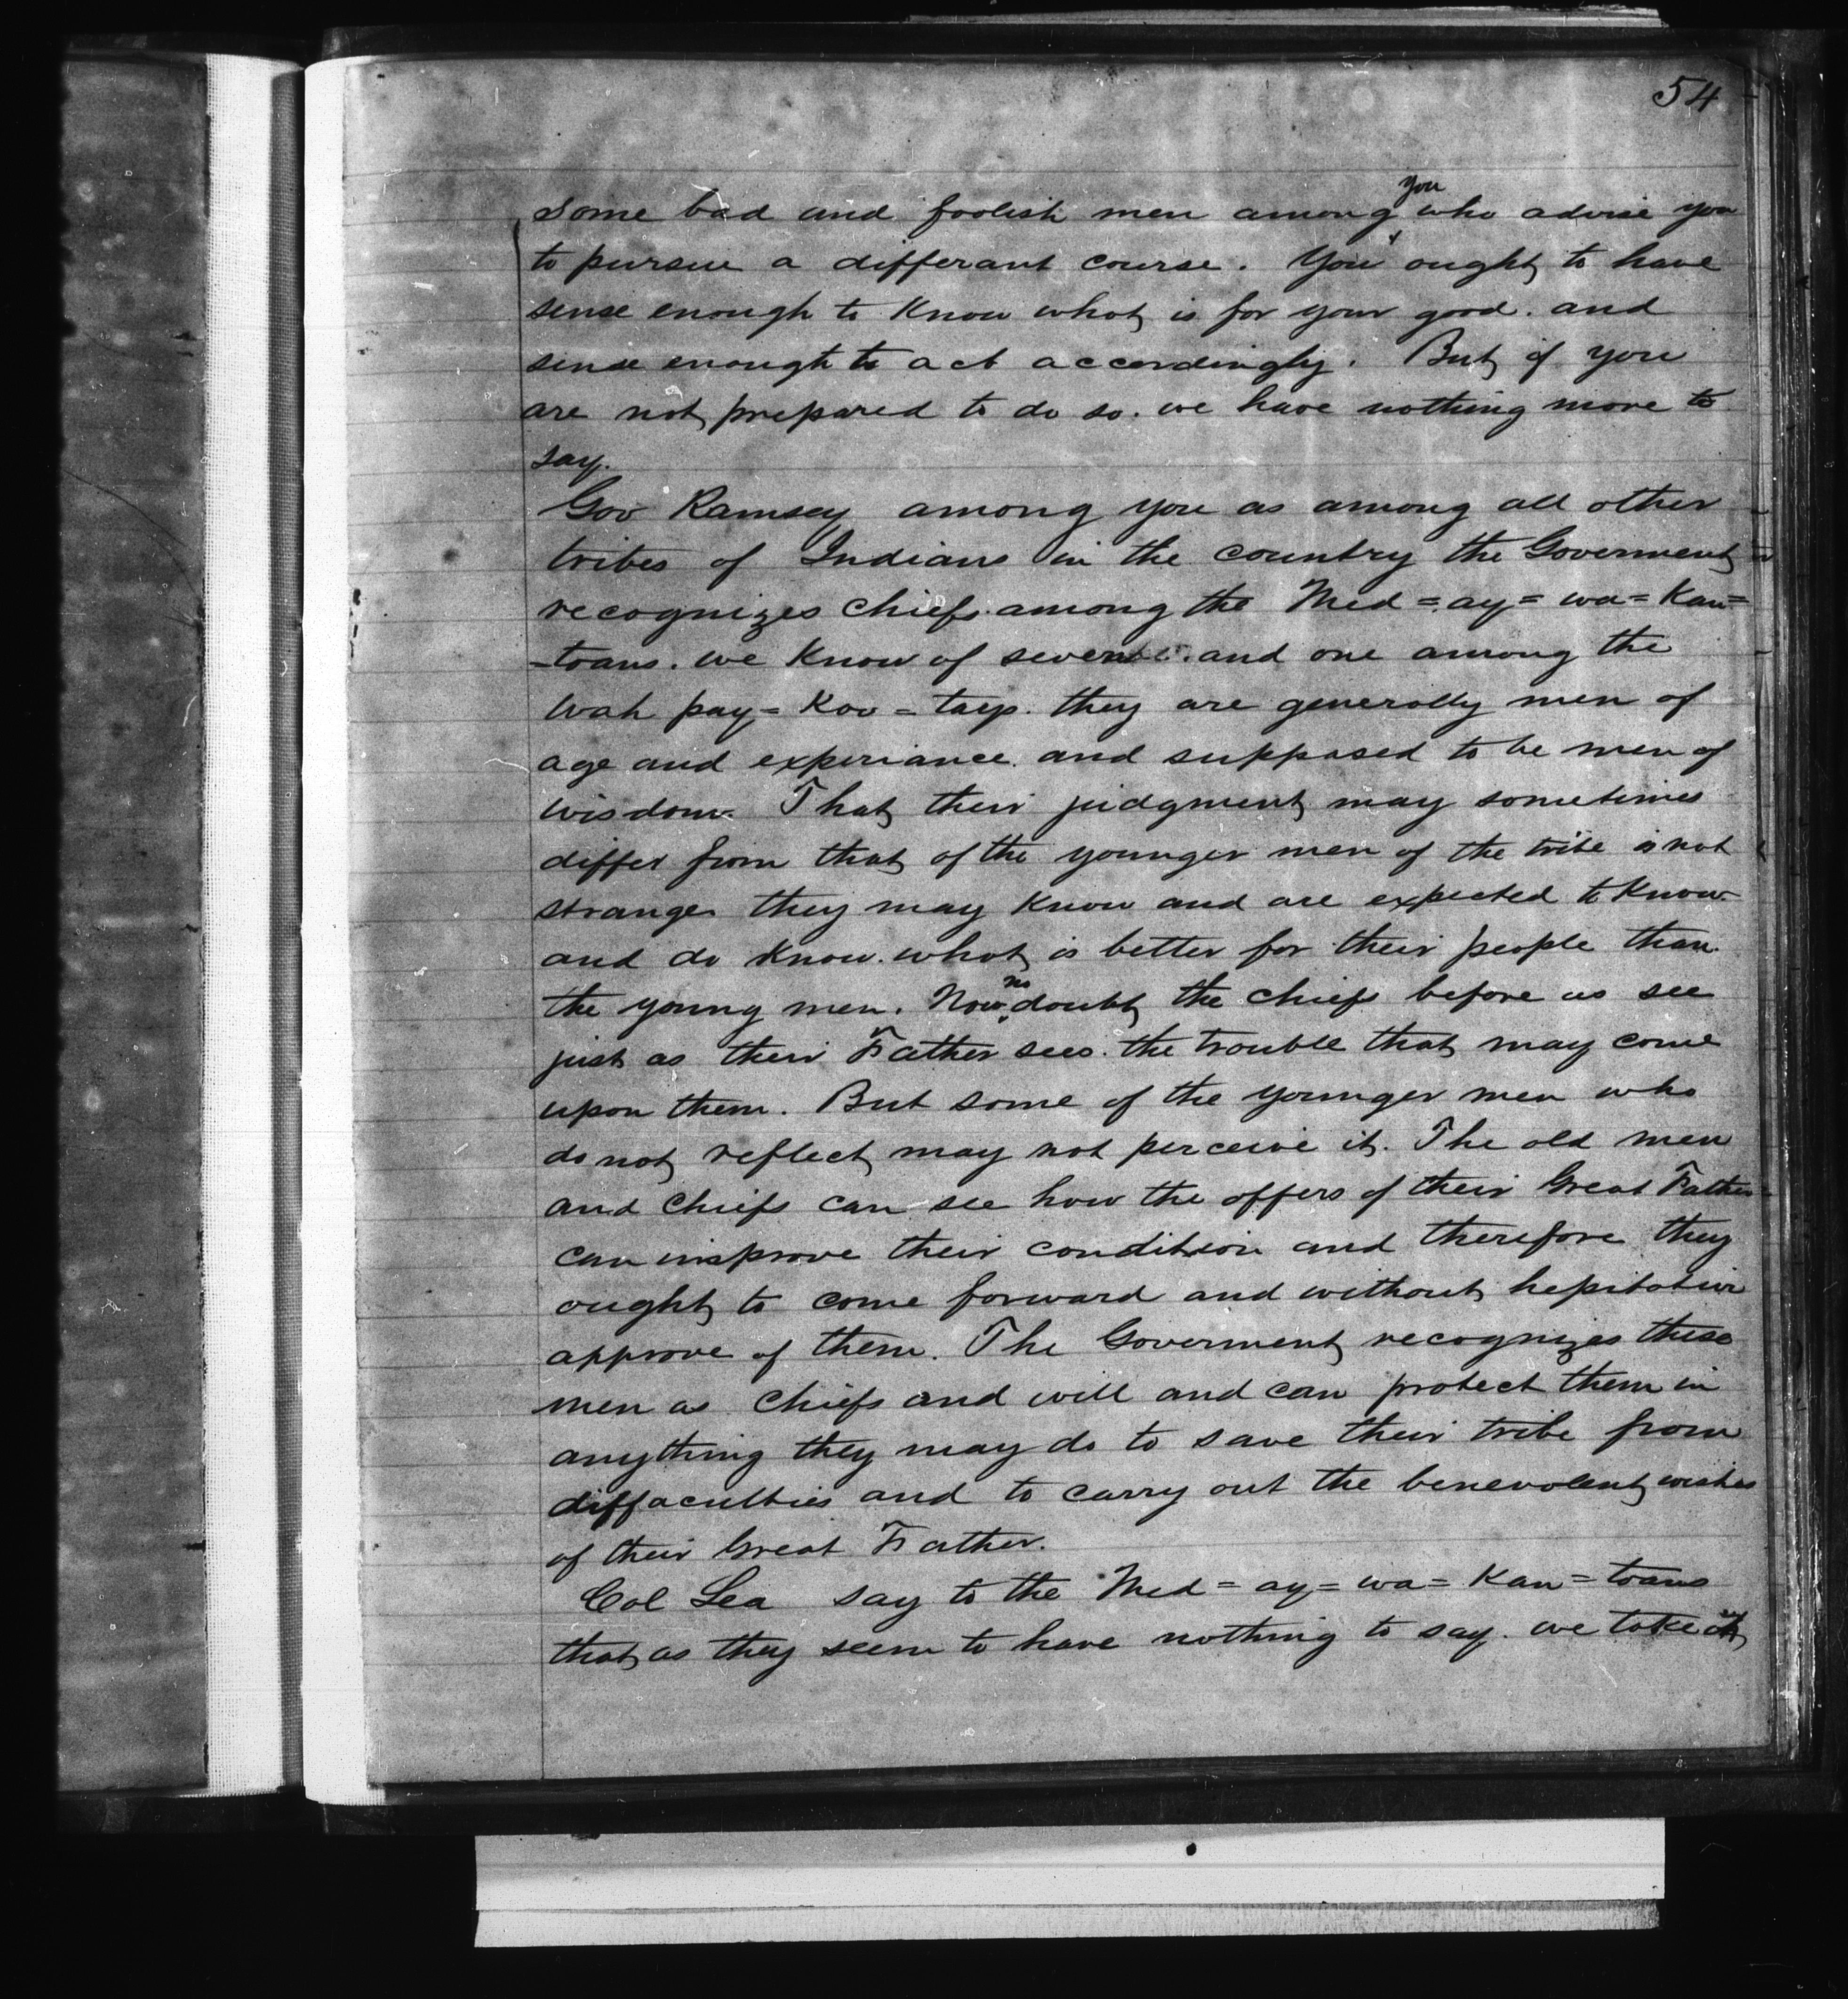 54
some bad and foolish men among you who advise you
to pursue a differant course. You ought to have
sense enough to know what is for your good. and
sense enough to act accordingly. But if you
are not prepared to do so. we have nothing more to
say.
Gov Ramsey among you as among all other
tribes of Indians in the country the Goverment
recognizes chiefs. among the Med=ay=wa=Kan=
=toans. we know of seven and one among the
Wah pay=Koo=tays. they are generally men of
age and experiance. and supposed to be men of
wisdom. That their judgment may sometimes
differ from that of the younger men of the tribe is not
strange they may know and are expected to know.
and do know. what is better for their people than
the young men. Now no doubt the chiefs before us see
just as their Father sees. the trouble that may come
upon them. But some of the younger men who
do not reflect may not perceive it. The old men
and chiefs can see how the offers of their Great Father
can improve their condition and therefore they
ought to come forward and without hesitation
approve of them. The Goverment recognizes these
men as chiefs and will and can protect them in
anything they may do to save their tribe from
diffaculties and to carry out the benevolent wishes
of their Great Father.
Col Lea say to the Med=ay=wa=Kan=toans
that as they seem to have nothing to say. we take it